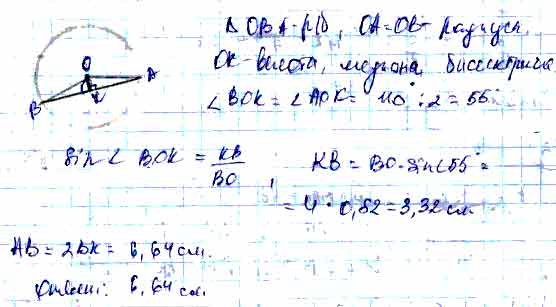 △ OBA - р/б, OA=OB - радиусы.
OK - высота, медиана, биссектриса
∠BOK = ∠AOK = 110° : 2 = 55°
O
A
B
K
sin∠ BOK = KB/BO, KB = BO·sin∠55° =
= 4 · 0,82 = 3,32 см
AB = 2BK = 6,64 см.
Ответ: 6,64 см.